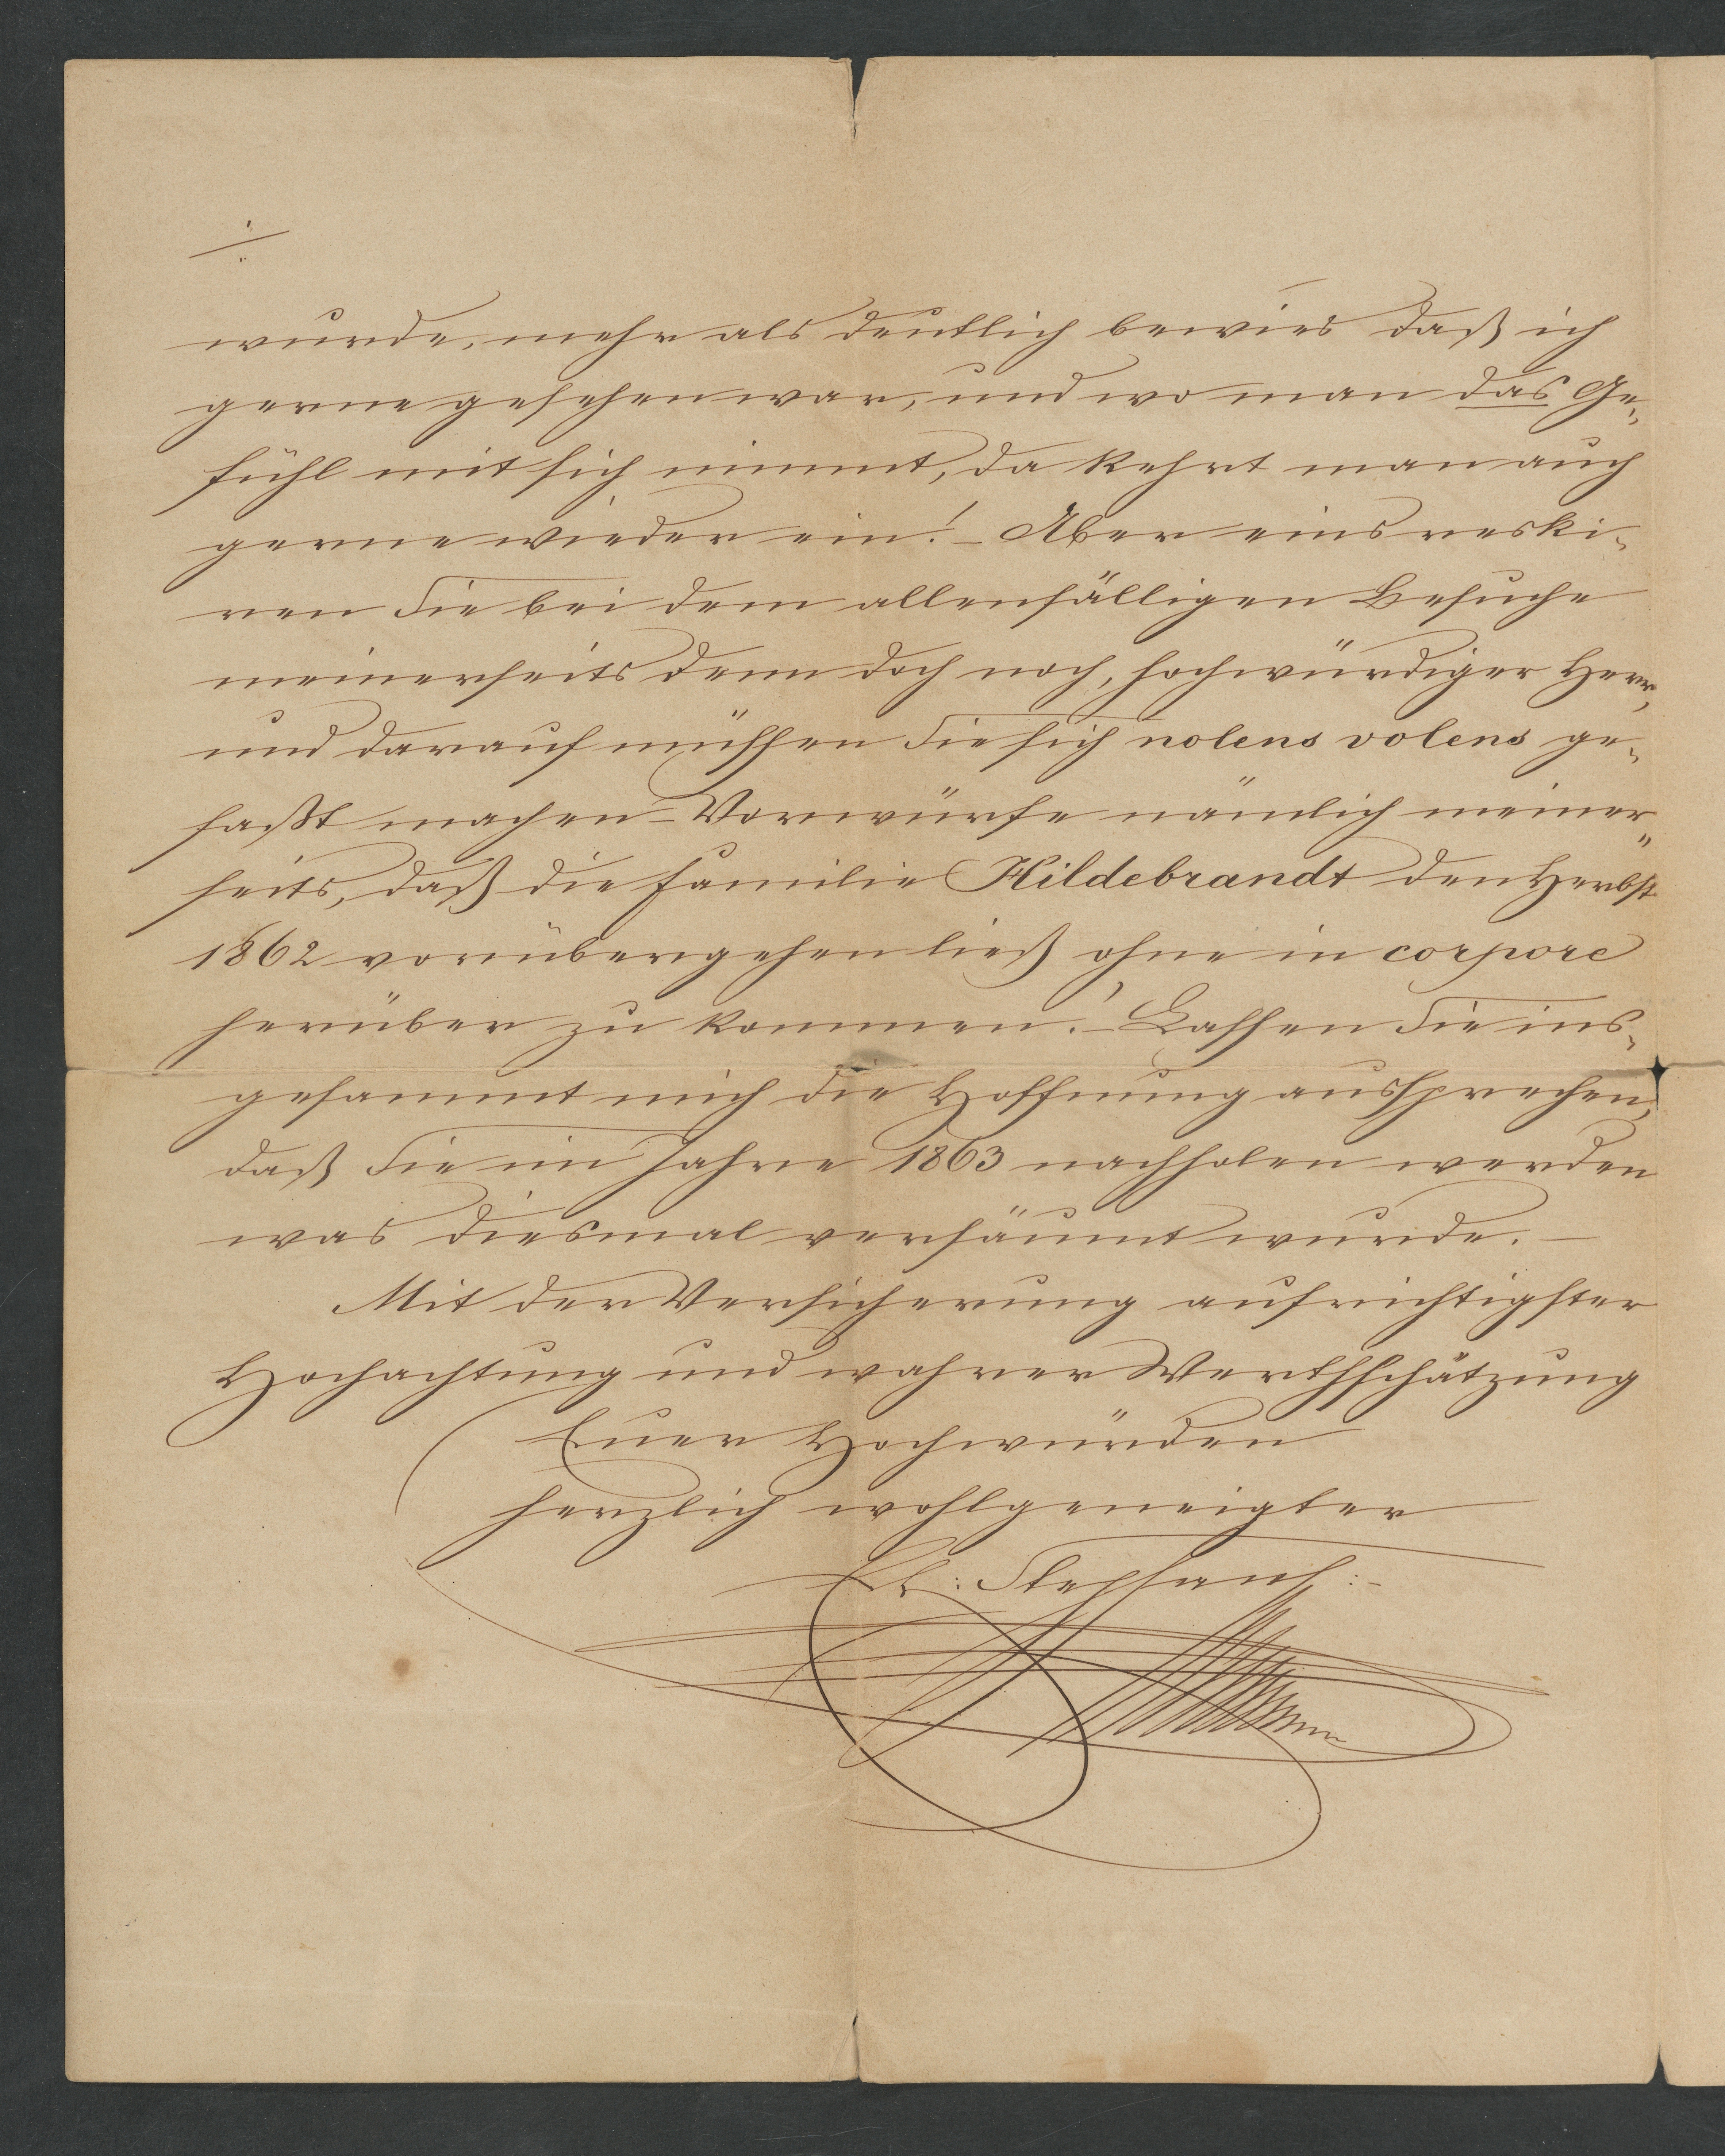 wurde, mehr als deutlich bewies daß ich
gerne gesehen war, und wo man das Ge-
fühl mit sich nimmt, da kehrt man auch
gerne wieder ein! – Aber eins reski-
ren Sie bei dem allenfälligen Besuche
meinerseits denn doch noch, hochwürdiger Herr,
und darauf müssen Sie sich nolens volens ge-
faßt machen – Vorwürfe nämlich meiner-
seits, daß die Familie Hildebrandt den Herbst
1862 vorübergehen ließ ohne in corpore
herüber zu kommen! – Lassen Sie ins-
gesammt mich die Hoffnung aussprechen,
daß Sie im Jahre 1863 nachholen werden
was diesmal versäumt wurde. –
Mit der Versicherung aufrichtigster
Hochachtung und wahrer Werthschätzung
Euer Hochwürden
herzlich wohlgeneigter